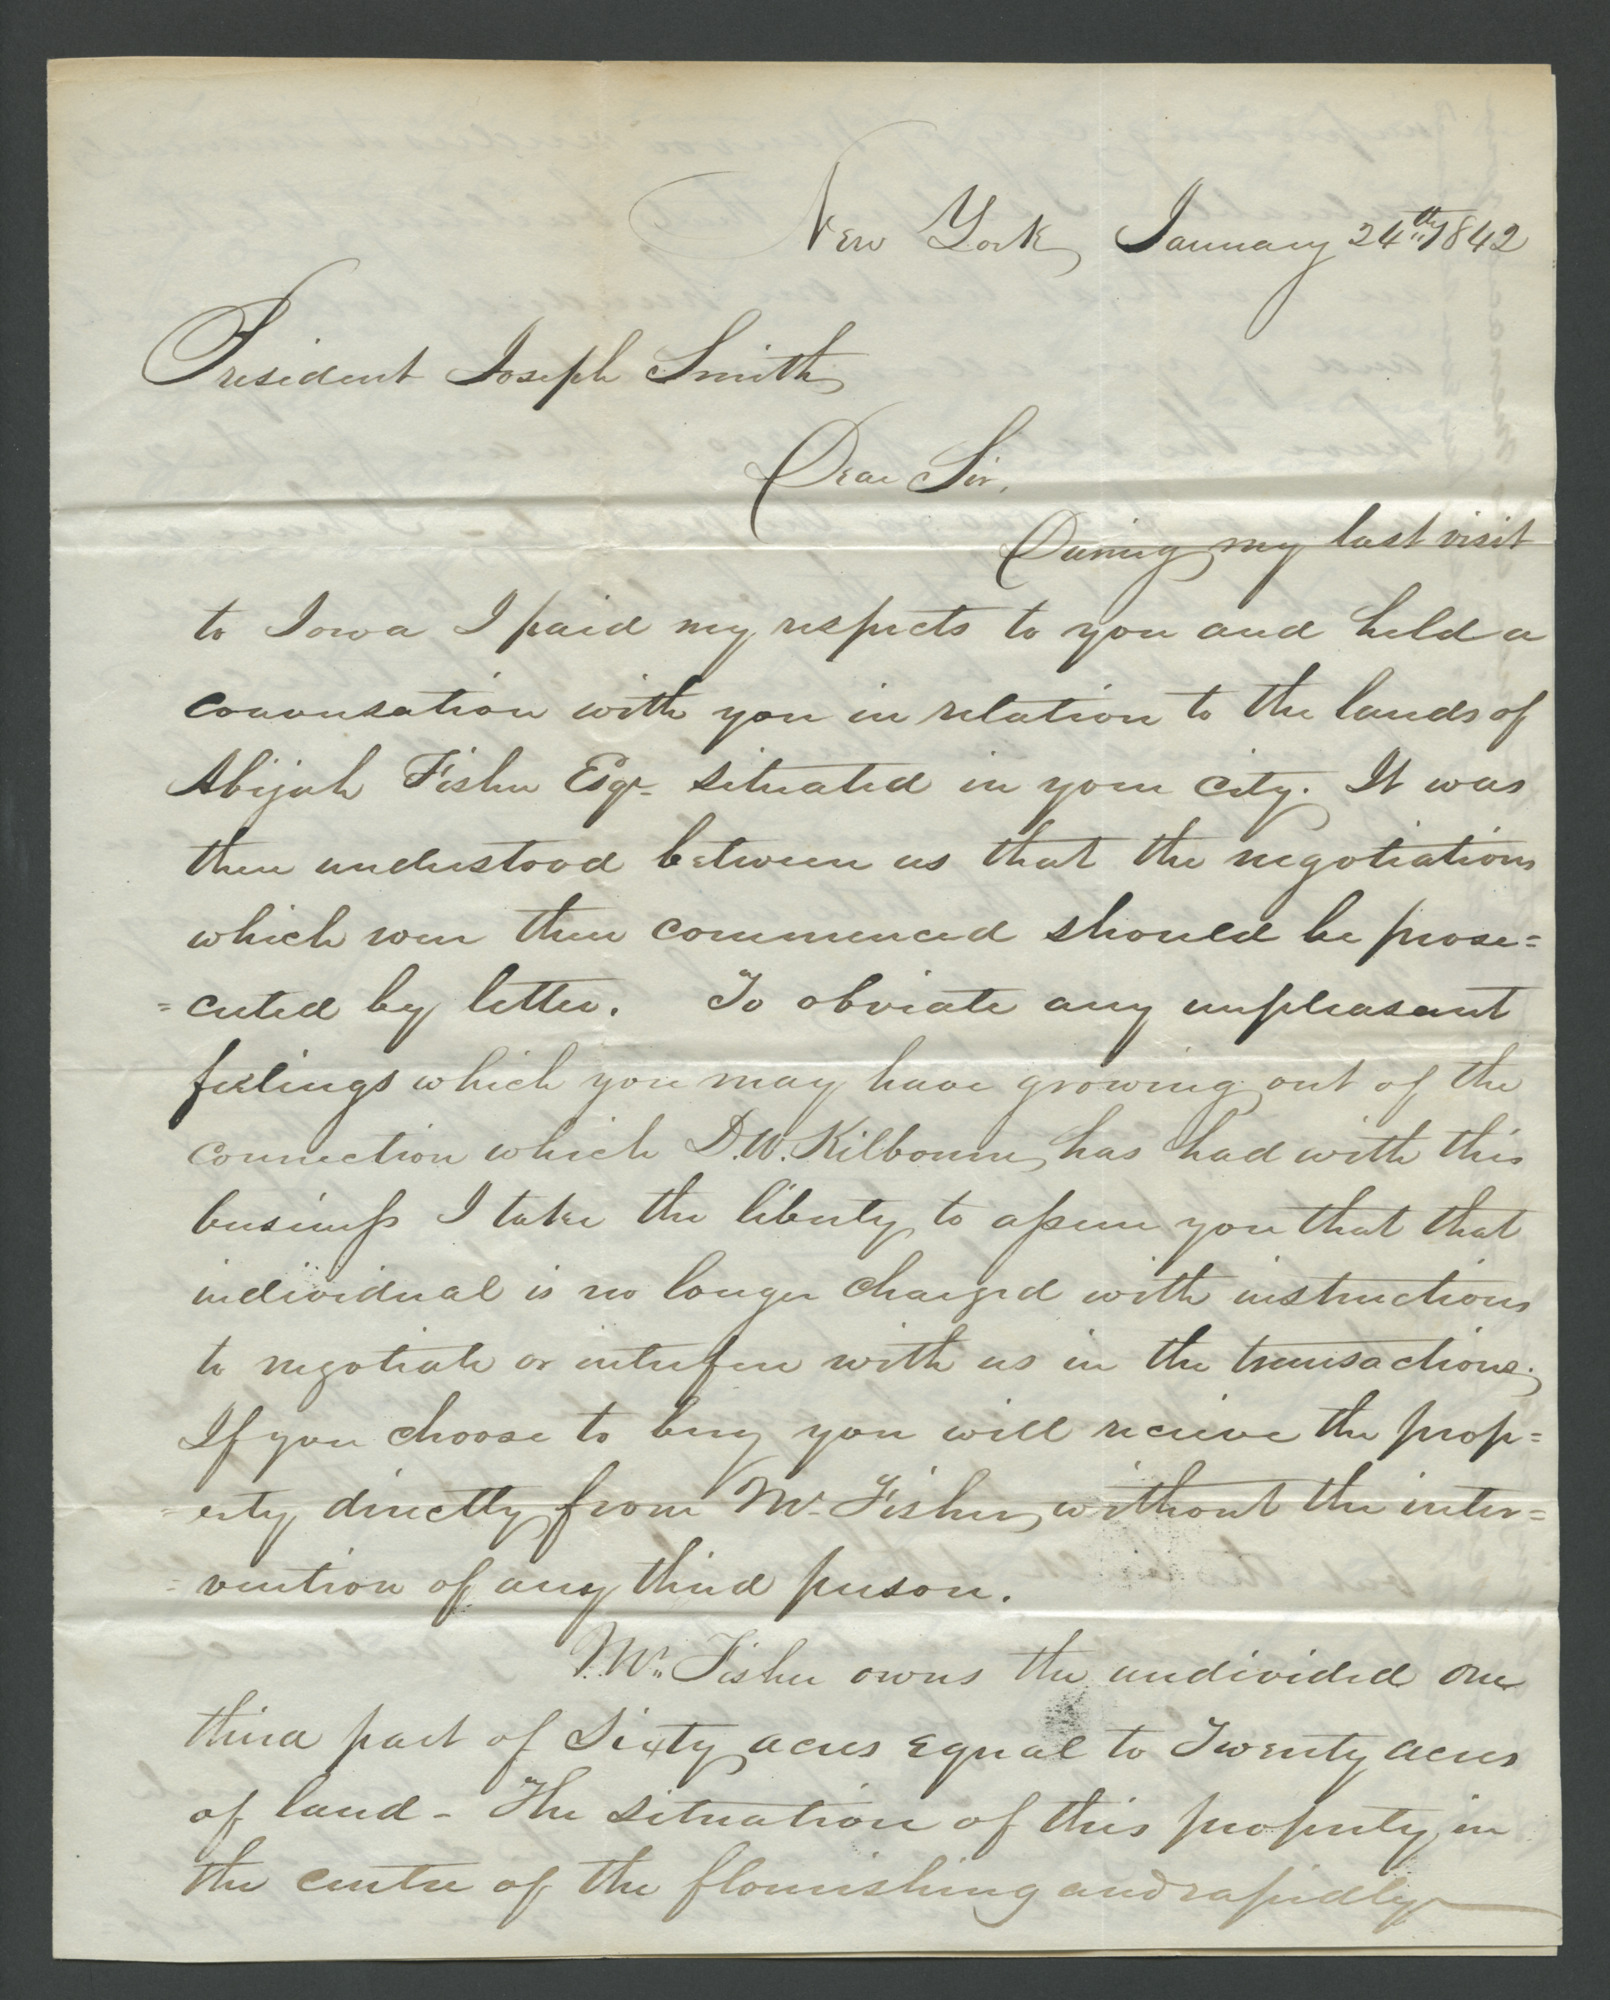 New York January 24th 1842
President Joseph Smith
Dear Sir,
During my last visit
to Iowa I paid my respects to you and held a
conversation with you in relation to the lands of
Abijah Fisher Esqr. situated in your city. It was
then understood between us that the negotiations
which were then commenced should be prose=
=cuted by letter. To obviate any unpleasant
feelings which you may have growing out of the
connection which D.W. Kilbourn has had with this
business I take the liberty to assure you that that
individual is no longer charged with instructions
to negotiate or interfere with us in the transactions.
If you choose to buy you will recieve the prop=
=erty directly from Mr. Fisher without the inter=
=vention of any third person.
Mr. Fisher owns the undivided one
third part of Sixty acres equal to Twenty acres
of land - The situation of this property in
the centre of the flourishing and rapidly